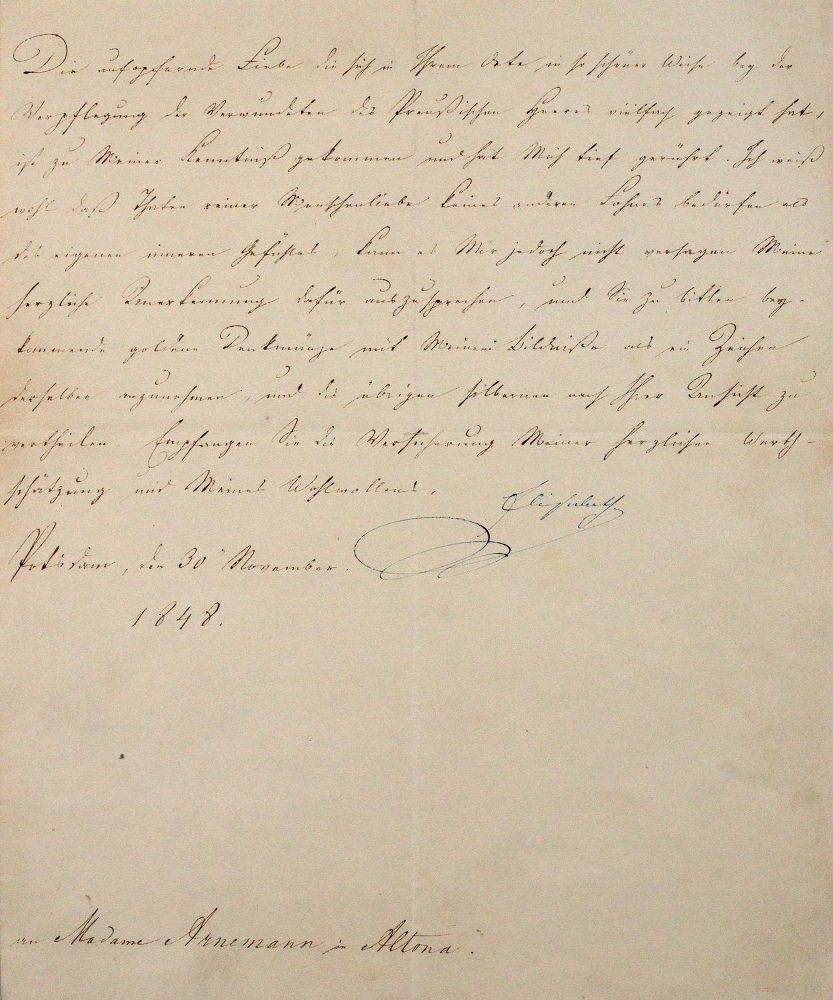 Die aufopfernde Liebe die sich in Ihrem Orte in so schöner Weise bey der
Verpflegung der Verwundeten des Preußischen Heeres vielfach gezeigt hat,
ist zu Meiner Kenntniß gekommen und hat Mich tief gerührt. Ich weiß
wohl daß Thaten reiner Menschenliebe keines anderen Lohnes bedürfen als
des eigenen inneren Gefühles, kann es Mir jedoch nicht versagen Meine
herzliche Anerkennung dafür auszusprechen, und Sie zu bitten bey-
kommende goldene Denkmünze mit Meinem Bildniße als ein Zeichen
derselben anzunehmen, und die übrigen silbernen nach Ihrer Ansicht zu
vertheilen. Empfangen Sie die Versicherung Meiner herzlichen Werth-
schätzung und Meines Wohlwollens.
Elisabeth
Potsdam, den 30 November.
1848.
an Madame Arnemann in Altona.